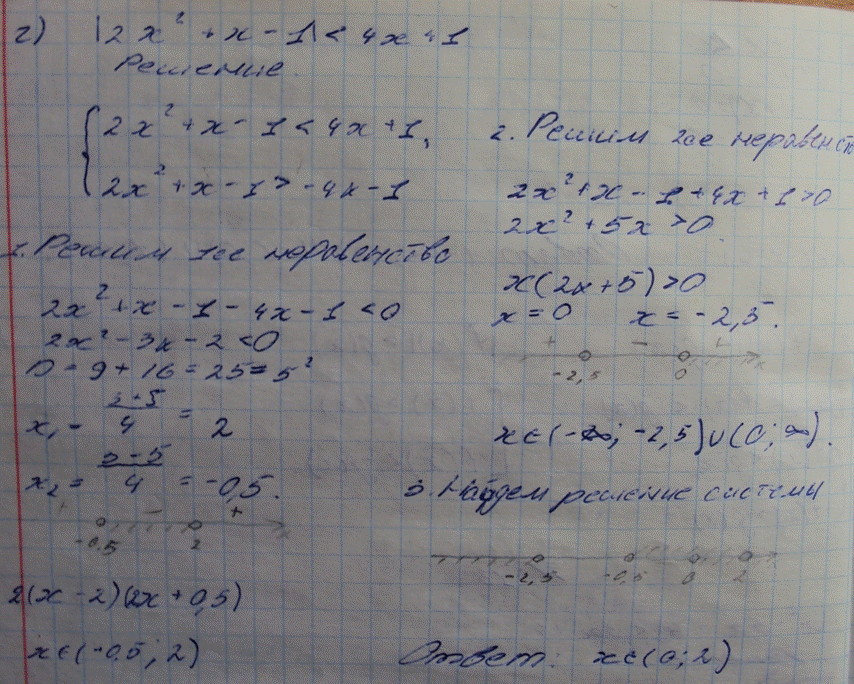 г) |2x² + x - 1| < 4x + 1
Решение.
{ 2x² + x - 1 < 4x + 1,
2x² + x - 1 > -4x - 1
1. Решим 1ое неравенство
2x² + x - 1 - 4x - 1 < 0
2x² - 3x - 2 < 0
D = 9 + 16 = 25 = 5²
x₁ = (3+5)/4 = 2
x₂ = (3-5)/4 = -0,5.
+ - +
-0,5 2 x
2(x - 2)(2x + 0,5)
x ∈ (-0,5; 2)
2. Решим 2ое неравенств
2x² + x - 1 + 4x + 1 > 0
2x² + 5x > 0
x(2x + 5) > 0
x = 0 x = -2,5.
+ - +
-2,5 0 x
x ∈ (-∞; -2,5) ∪ (0; ∞).
3. Найдем решение системы
-2,5 -0,5 0 2
Ответ: x ∈ (0; 2)